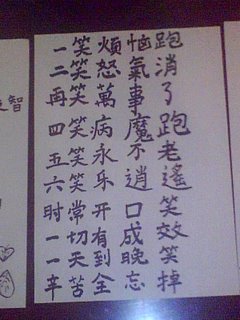 一笑煩恼跑
二笑怒氣消
再笑萬事了
四笑病魔跑
五笑永不老
六笑乐逍遙
时常开口笑
一切有成效
一天到晚笑
辛苦全忘掉
智